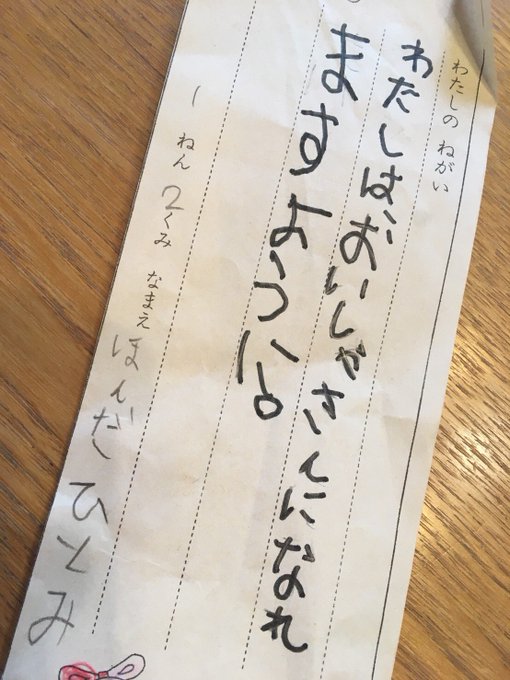 わたしの ねがい
わたしは、おいしゃさんになれ
ますように。
1 ねん 2くみ なまえ ほんだ ひとみ